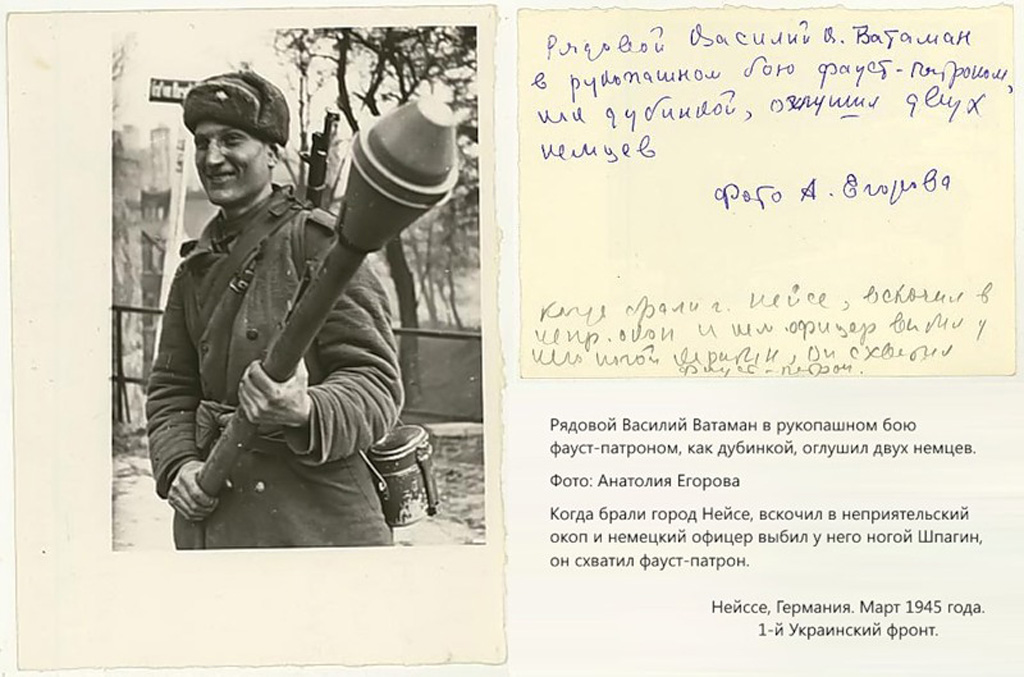 Рядовой Василий В. Ватаман
в рукопашном бою фауст-патроном,
как дубинкой, оглушил двух
немцев
Фото А. Егорова
Когда брали г. Нейсе, вскочил в
непр. окоп и нем. офицер выбил у
него ногой он схватил
фауст-патрон.
Рядовой Василий Ватаман в рукопашном бою
фауст-патроном, как дубинкой, оглушил двух немцев.
Фото: Анатолия Егорова
Когда брали город Нейсе, вскочил в неприятельский
окоп и немецкий офицер выбил у него ногой Шпагин,
он схватил фауст-патрон.
Нейссе, Германия. Март 1945 года.
1-й Украинский фронт.